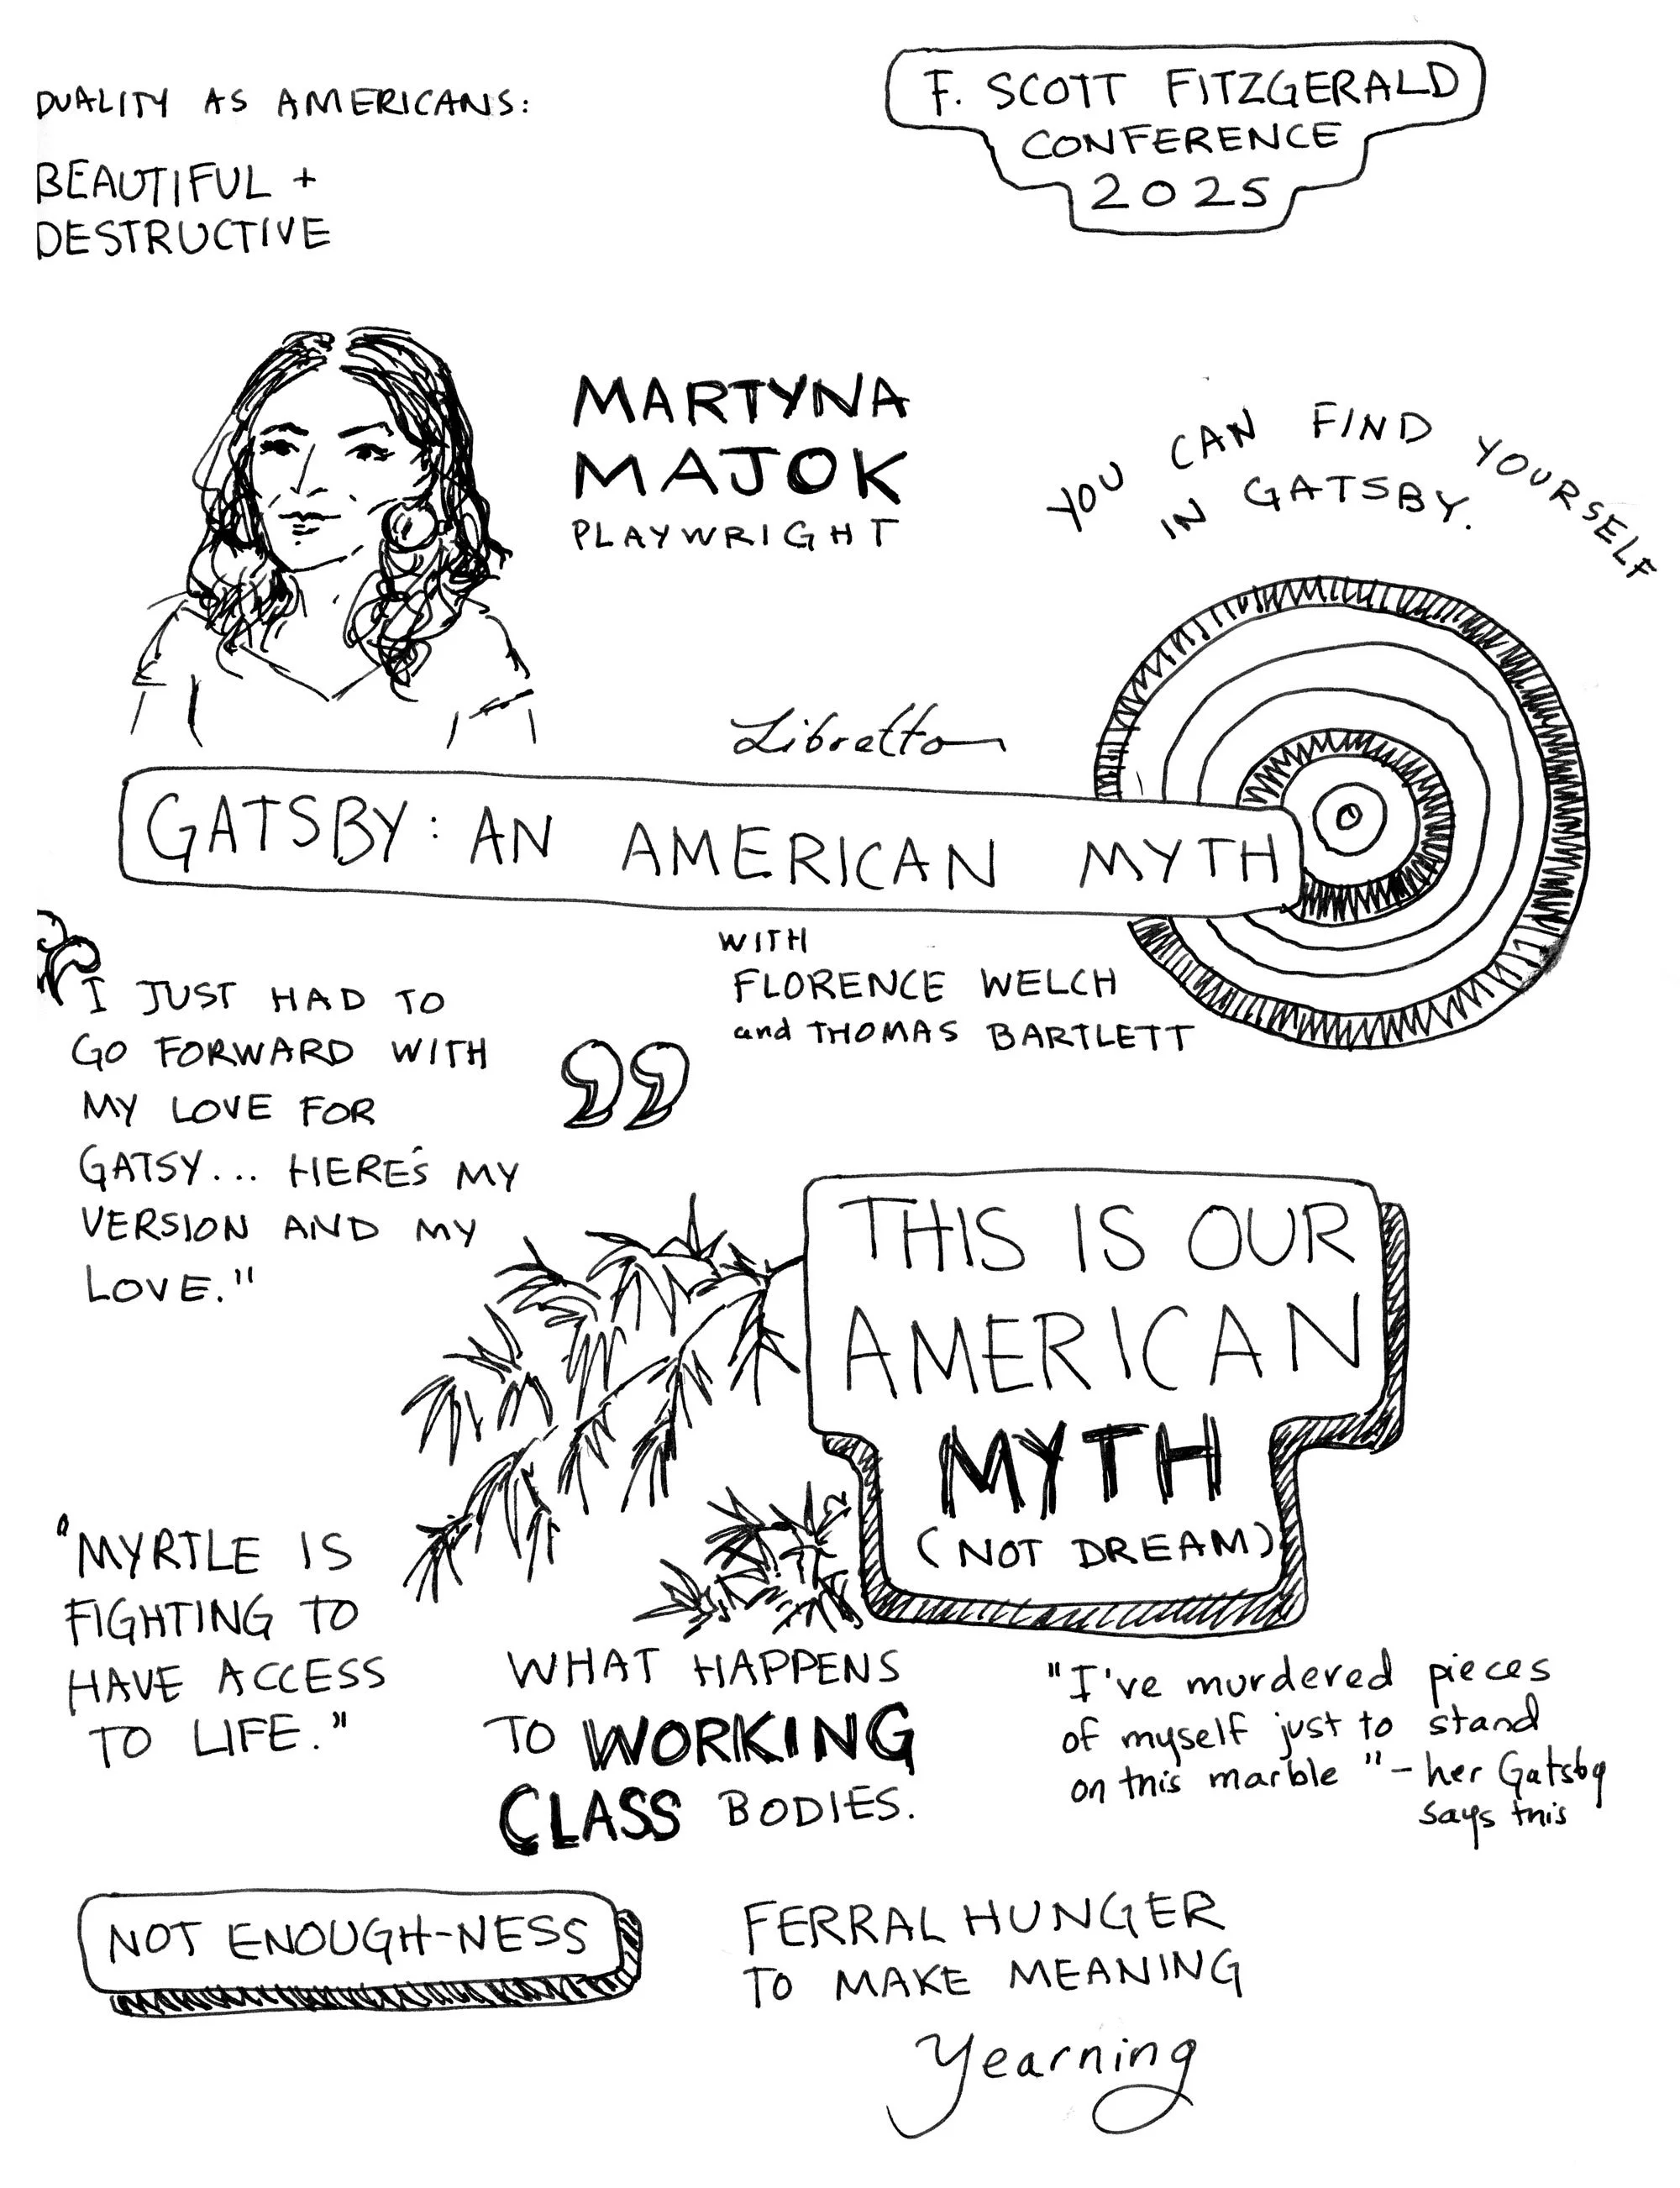 DUALITY AS AMERICANS:
BEAUTIFUL +
DESTRUCTIVE
F. SCOTT FITZGERALD
CONFERENCE
2025
MARTYNA
MAJOK
PLAYWRIGHT
YOU CAN FIND YOURSELF
IN GATSBY.
Libretto
GATSBY: AN AMERICAN MYTH
WITH
FLORENCE WELCH
and THOMAS BARTLETT
"I JUST HAD TO
GO FORWARD WITH
MY LOVE FOR
GATSY... HERE'S MY
VERSION AND MY
LOVE."
"
THIS IS OUR
AMERICAN
MYTH
(NOT DREAM)
"MYRTLE IS
FIGHTING TO
HAVE ACCESS
TO LIFE."
WHAT HAPPENS
TO WORKING
CLASS BODIES.
"I've murdered pieces
of myself just to stand
on this marble" - her Gatsby
says this
NOT ENOUGH-NESS
FERRAL HUNGER
TO MAKE MEANING
Yearning